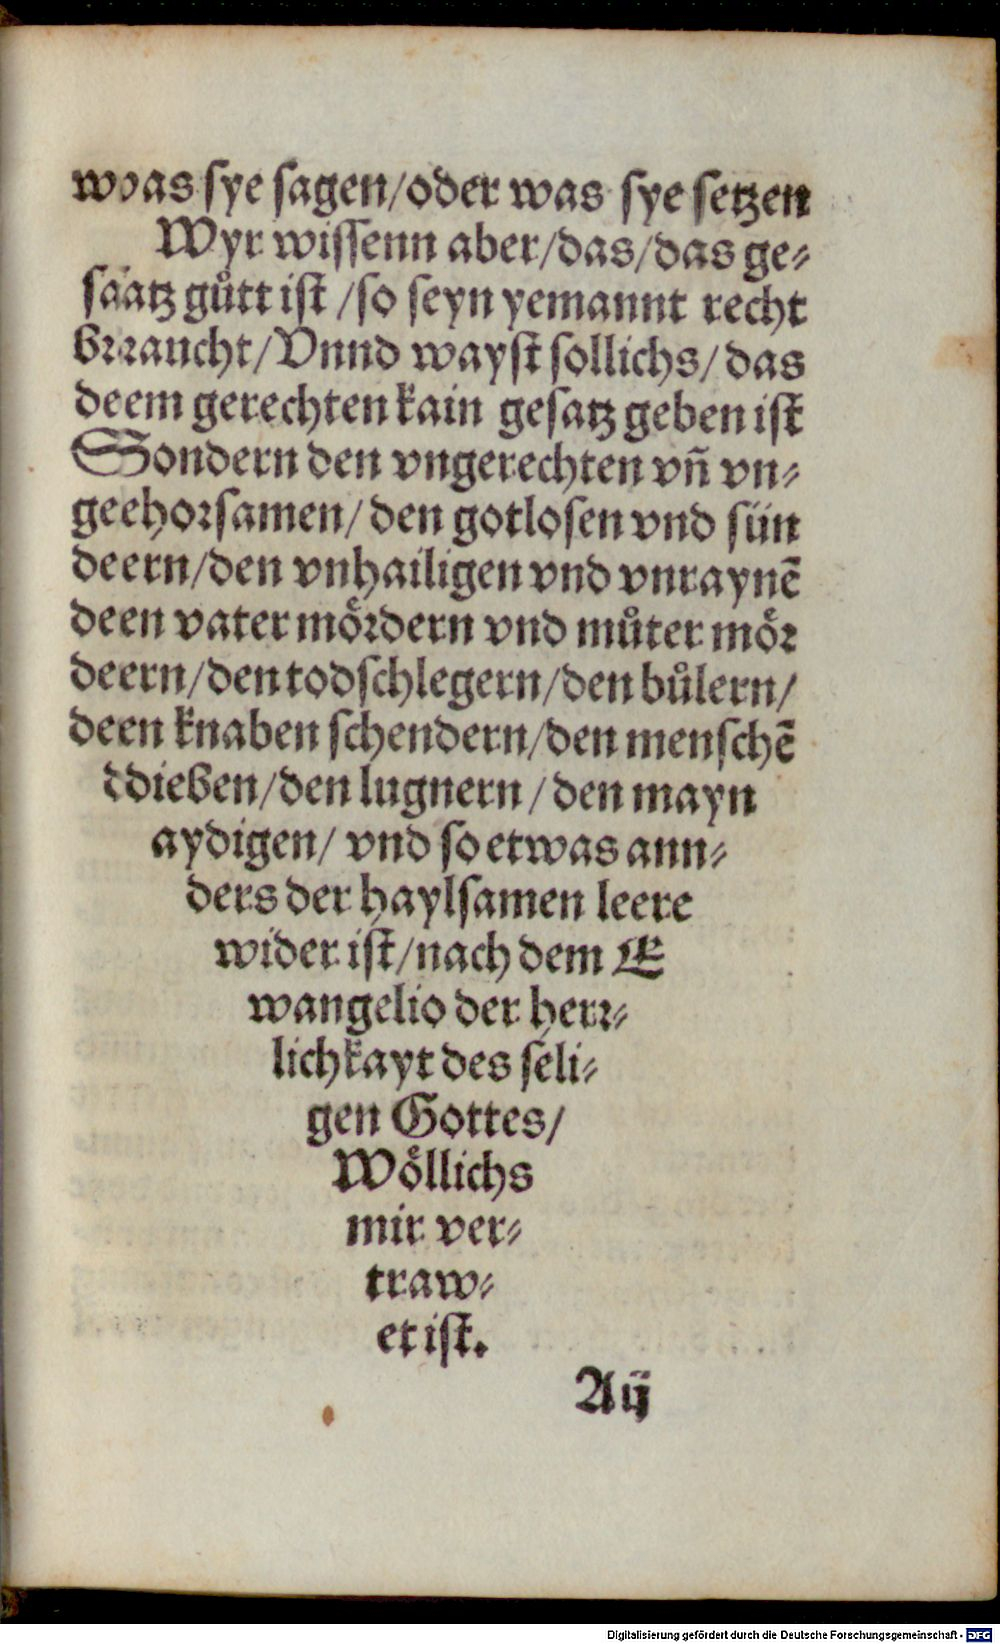 woas sye sagen/oder was sye setzen
Wyr wissenn aber/das/das ge⸗
saatz gůtt ist /so seyn yemannt recht
brraucht/Vnnd wayst sollichs/das
deem gerechten kain gesatz geben ist
Sondern den vngerechten vñ vn⸗
geehorsamen/den gotlosen vnd sün
deern/den vnhailigen vnd vnraynẽ
deen vater mo̊rdern vnd můter mo̊r
deern/den todschlegern/den bůlern/
deen knaben schendern/den menschẽ
ddieben/den lugnern/den mayn
aydigen/ vnd so etwas ann⸗
ders der haylsamen leere
wider ist/nach dem E
wangelio der herr⸗
lichkayt des seli⸗
gen Gottes/
Wo̊llichs
mir ver⸗
traw⸗
et ist.
Aij
Digitalisierung gefördert durch die Deutsche Forschungsgemeinschaft - DFG